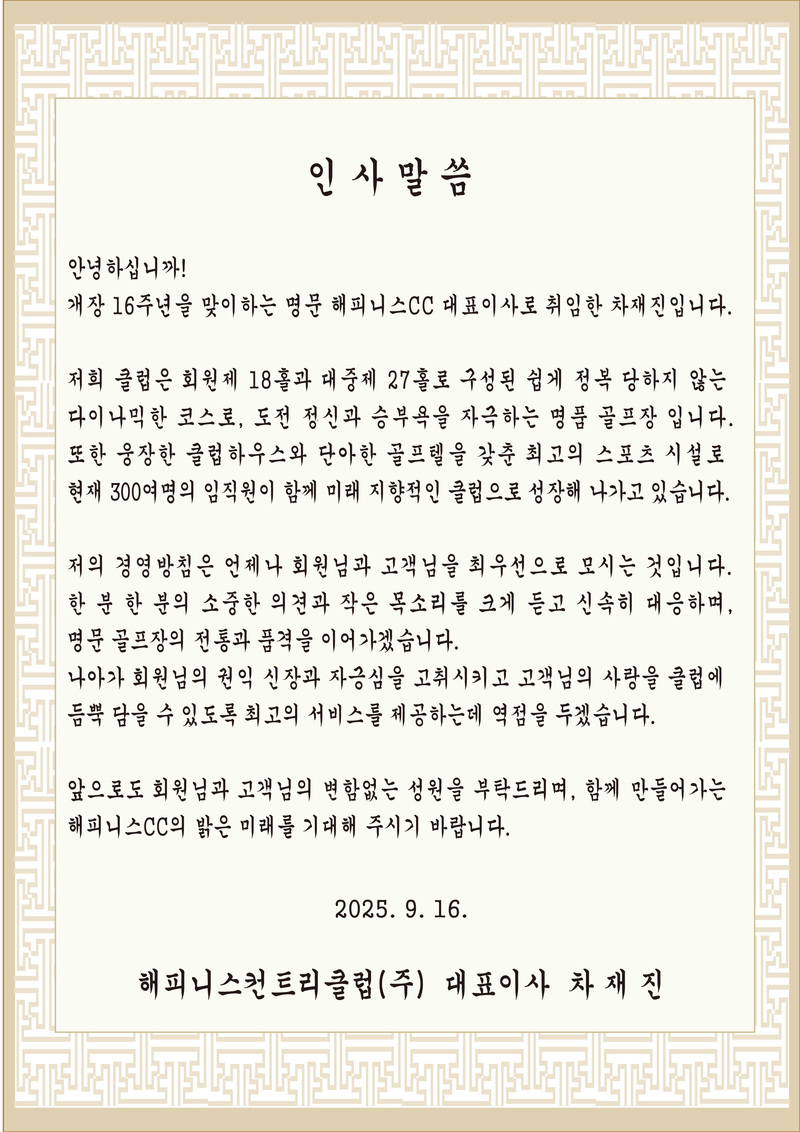 인 사 말 씀
안녕하십니까!
개장 16주년을 맞이하는 명문 해피니스CC 대표이사로 취임한 차재진입니다.
저희 클럽은 회원제 18홀과 대중제 27홀로 구성된 쉽게 정복 당하지 않는
다이나믹한 코스로, 도전 정신과 승부욕을 자극하는 명품 골프장 입니다.
또한 웅장한 클럽하우스와 단아한 골프텔을 갖춘 최고의 스포츠 시설로
현재 300여명의 임직원이 함께 미래 지향적인 클럽으로 성장해 나가고 있습니다.
저의 경영방침은 언제나 회원님과 고객님을 최우선으로 모시는 것입니다.
한 분 한 분의 소중한 의견과 작은 목소리를 크게 듣고 신속히 대응하며,
명문 골프장의 전통과 품격을 이어가겠습니다.
나아가 회원님의 권익 신장과 자긍심을 고취시키고 고객님의 사랑을 클럽에
듬뿍 담을 수 있도록 최고의 서비스를 제공하는데 역점을 두겠습니다.
앞으로도 회원님과 고객님의 변함없는 성원을 부탁드리며, 함께 만들어가는
해피니스CC의 밝은 미래를 기대해 주시기 바랍니다.
2025. 9. 16.
해피니스컨트리클럽(주) 대표이사 차 재 진